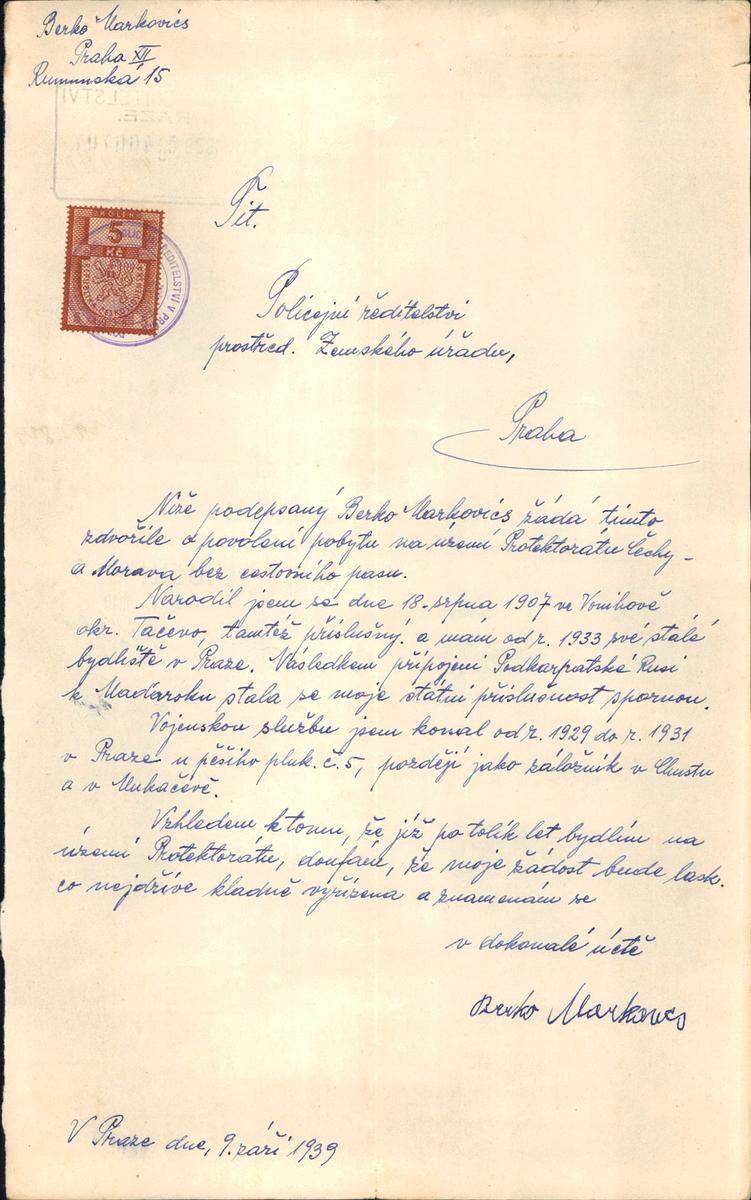 Berko Markovics
Praha XII
Rumunská 15
KOLEK
5
Kč
Tit.
Policejní ředitelství
prostřed. Zemského úřadu,
Praha
Níže podepsaný Berko Markovics žádá tímto
zdvořile o povolení pobytu na území Protektorátu Čechy –
a Morava bez cestovního pasu.
Narodil jsem se dne 18. srpna 1907 ve Vonihově
okr. Tačevo, tamtéž příslušný a mám od r. 1933 své stálé
bydliště v Praze. Následkem připojení Podkarpatské Rusi
k Maďarsku stala se moje státní příslušnost spornou.
Vojenskou službu jsem konal od r. 1929 do r. 1931
v Praze u pěšího pluk. č. 5, později jako záložník v Chustu
a v Mukačevě.
Vzhledem k tomu, že již po tolik let bydlím na
území Protektorátu, doufám, že moje žádost bude lask.
co nejdříve kladně vyřízena a znamenám se
v dokonalé úctě
Berko Markovics
V Praze dne, 9. září 1939